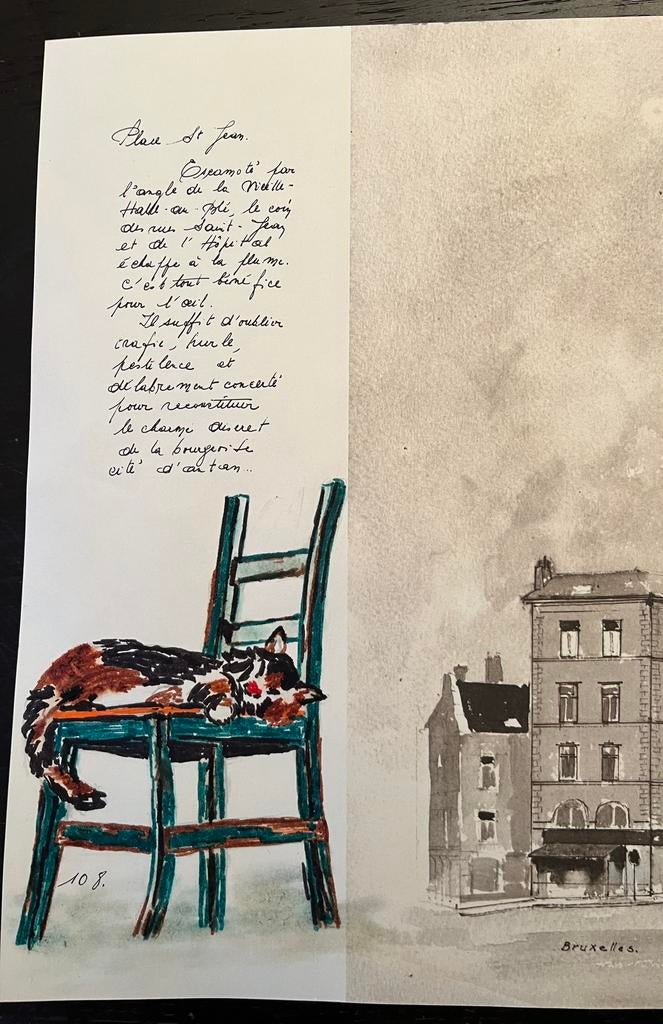 Place St Jean.
Escamoté par
l'angle de la Vieille-
Halle-au-Blé, le coin
des rues Saint-Jean
et de l'Hôpital
échappe à la plume.
C'est tout bénéfice
pour l'œil.
Il suffit d'oublier
trafic, hurlé,
pestilence et
délabrement concerté
pour reconstituer
le charme discret
de la bourgeoise
cité d'antan...
108.
Bruxelles.